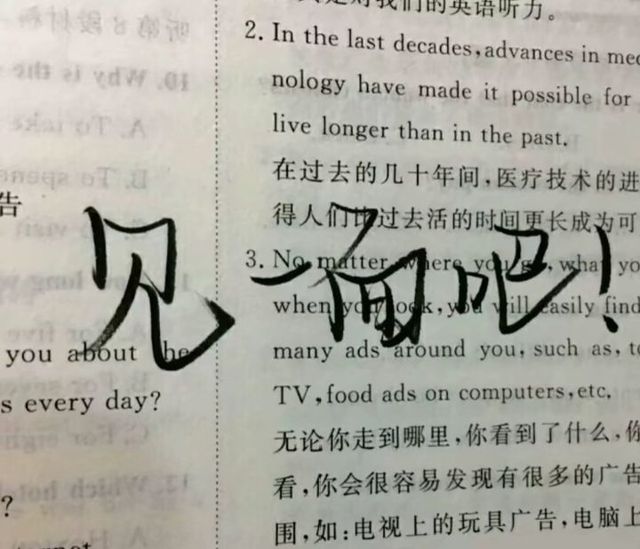 是对我们的英语听力。
2. In the last decades, advances in med
nology have made it possible for
live longer than in the past.
在过去的几十年间,医疗技术的进
得人们比过去活的时间更长成为可
3. No matter where you go, what yo
when you look, you will easily find
many ads around you, such as, to
TV, food ads on computers, etc.
无论你走到哪里,你看到了什么,你
看,你会很容易发现有很多的广告
围,如:电视上的玩具广告,电脑上
告
you about the
s every day?
?
见一面吧!